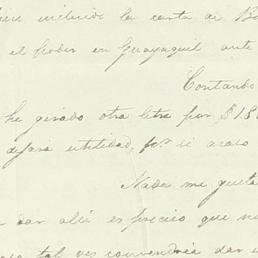 incluido la carta de
el poder en Guayaquil ante
Contando
he girado otra letra por $
dejara utilidad, pr. si acaso
Nada me gusta
dar allí es preciso que
tal vez convendria dar